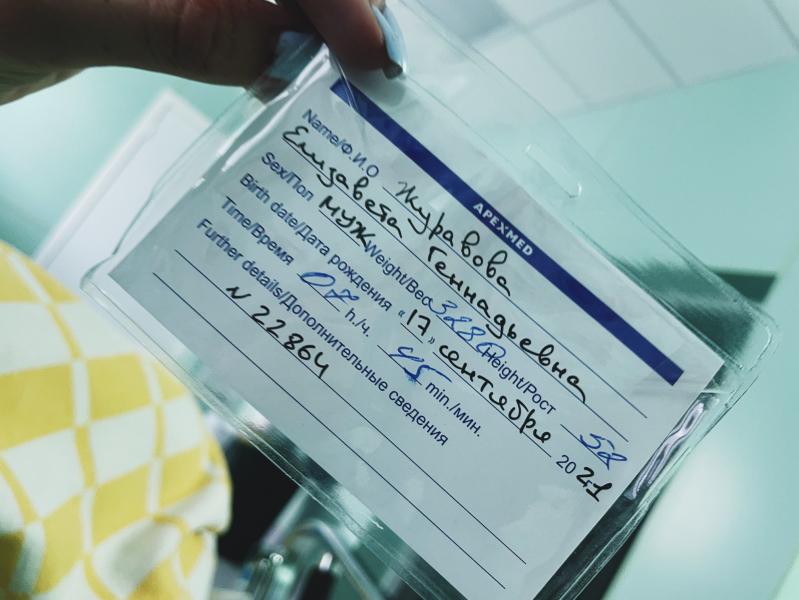 APEXMED
Name/Ф.И.О Журавова
Елизавета Геннадьевна
Sex/Пол муж Weight/Вес 3280 Height/Рост 52
Birth date/Дата рождения «17» сентября 2021
Time/Время 07 h./ч. 45 min./мин.
Further details/Дополнительные сведения
N 22864